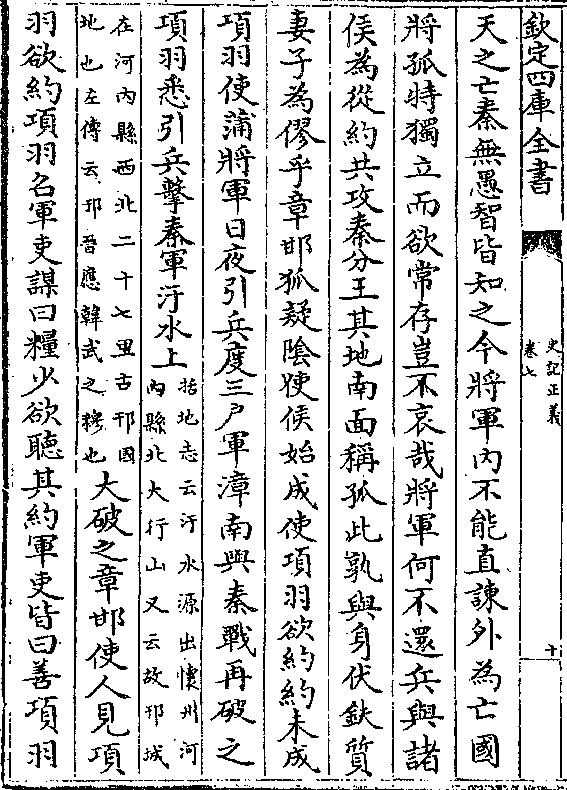 欽定四庫全書
史記正義
卷七
十
天之亡秦無愚智皆知之今將軍內不能直諫外為亡國
將孤特獨立而欲常存豈不哀哉將軍何不還兵與諸
侯為從約共攻秦分王其地南面稱孤此孰與身伏鈇質
妻子為僇乎章邯狐疑陰使侯始成使項羽欲約約未成
項羽使蒲將軍日夜引兵度三户軍漳南與秦戰再破之
項羽悉引兵擊秦軍汙水上
括地志云汙水源出懷州河
內縣北大行山又云故邘城
在河內縣西北二十七里古邘國
地也左傳云邘晉應韓武之穆也
大破之章邯使人見項
羽欲約項羽名軍吏謀曰糧少欲聽其約軍吏皆曰善項羽